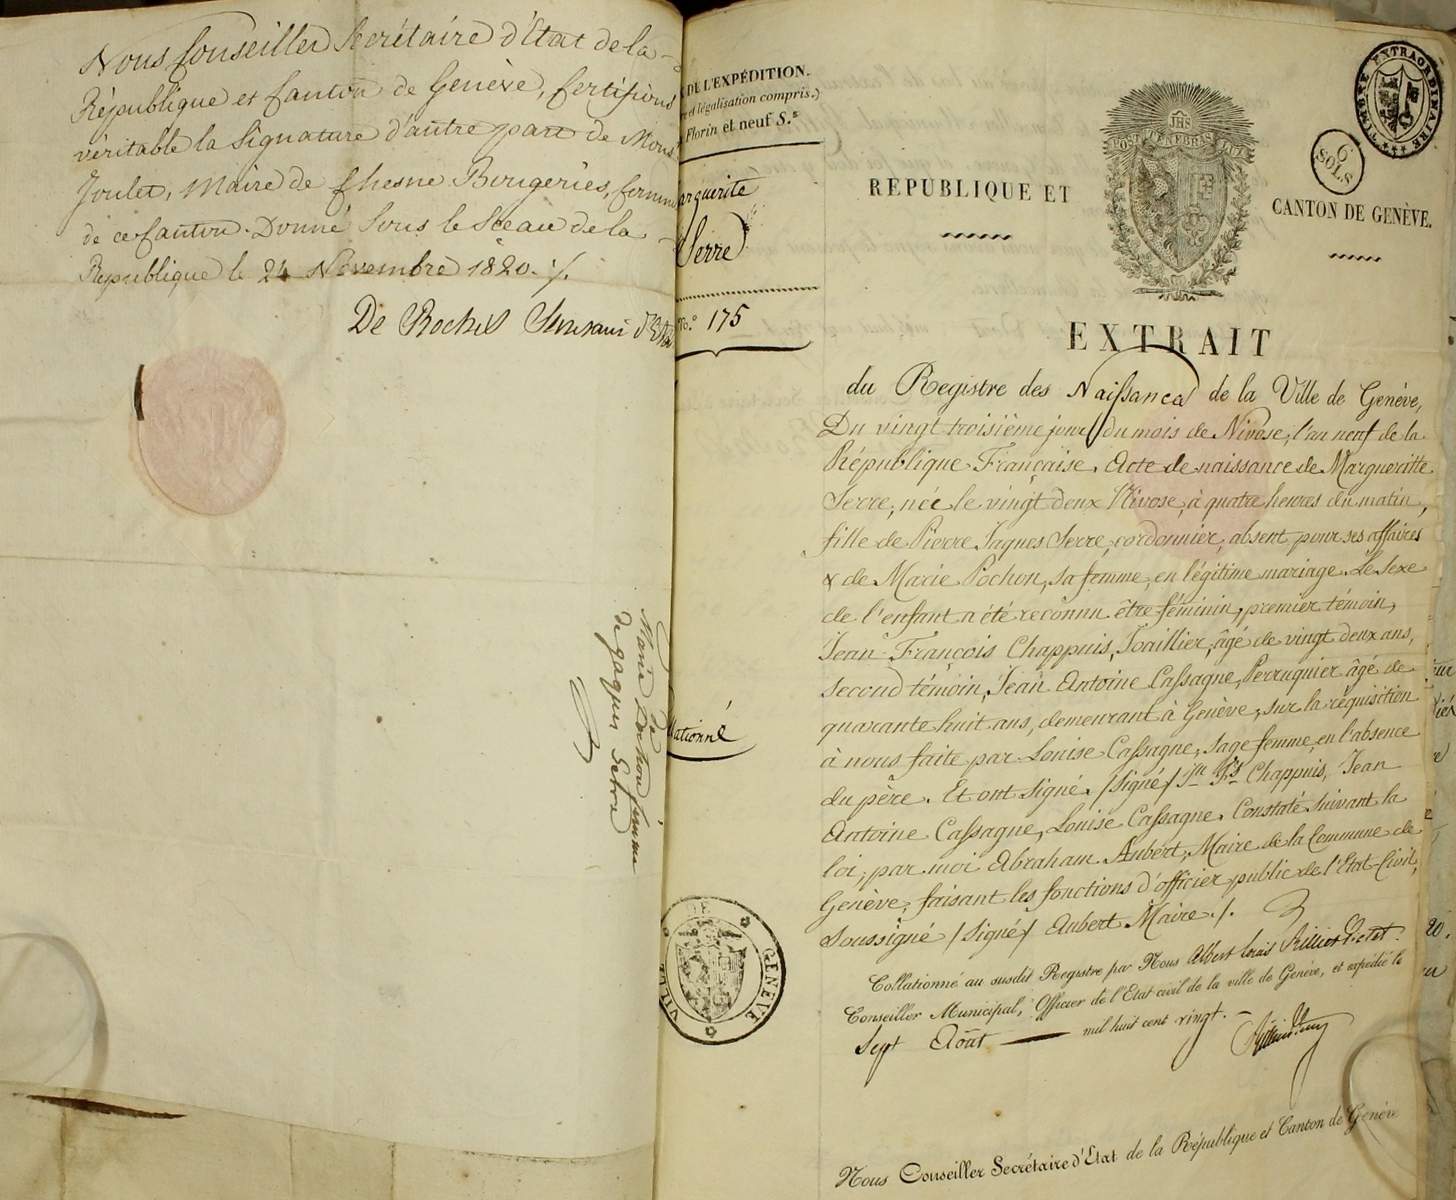 Nous Conseiller Secrétaire d'Etat de la
République et Canton de Genève, Certifions
véritable la Signature d'autre part de Mons.
Joulet, Maire de Chesne Bougeries,
de ce Canton. Donné Sous le Sceau de la
République le 24 Novembre 1820. /.
De Roches
Marie Pochon femme
de Jaques Serre
DE L'EXPÉDITION.
et légalisation compris.)
Florin et neuf S.s
arguerite
Serre
No. 175
lationné
VILLE DE GENÈVE
TIMBRE EXTRAORDINAIRE
6 SOLS
JHS
POST TENEBRAS LUX
RÉPUBLIQUE ET CANTON DE GENÈVE.
EXTRAIT
du Registre des Naissances de la Ville de Genève,
Du vingt troisième jour du mois de Nivose, l'an neuf de la
République Française. Acte de naissance de Margueritte
Serre, née le vingt deux Nivose, à quatre heures du matin,
fille de Pierre Jaques Serre, cordonnier, absent pour ses affaires
& de Marie Pochon, sa femme, en légitime mariage. Le Sexe
de l'enfant a été reconnu être féminin, premier témoin,
Jean François Chappuis, Joaillier, âgé de vingt deux ans,
second témoin, Jean Antoine Cassagne, Perruquier âgé de
quarante huit ans, demeurant à Genève, sur la réquisition
à nous faite par Louise Cassagne, sage femme, en l'absence
du père. Et ont signé. /signé/ Jn. Fs. Chappuis, Jean
Antoine Cassagne, Louise Cassagne. Constaté suivant la
loi, par moi Abraham Aubert, Maire de la Commune de
Genève, faisant les fonctions d'officier public de l'Etat-Civil,
Soussigné /Signé/ Aubert Maire./.
Collationné au susdit Registre par Nous Albert Louis Rilliet Pictet.
Conseiller Municipal, Officier de l'Etat civil de la ville de Genève, et expédié le
Sept Août mil huit cent vingt.
Nous Conseiller Secrétaire d'Etat de la République et Canton de Genève